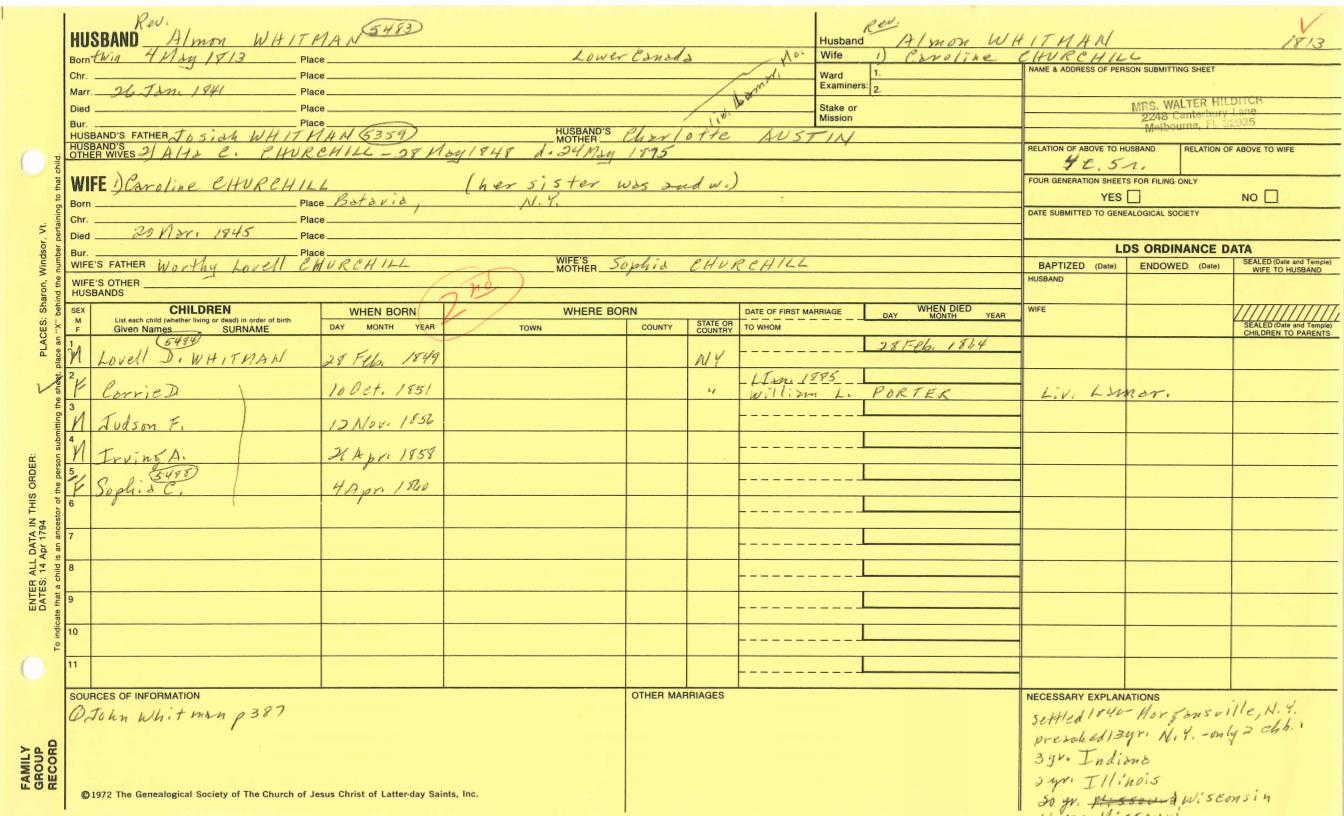 Rev.
HUSBAND Almon WHITMAN 5483
Born twin 4 May 1813 Place Lower Canada
Chr. Place
Marr. 26 Jan. 1841 Place
Died Place
Bur. Place
liv. Lamar, Mo.
HUSBAND'S FATHER Josiah WHITMAN 5359 HUSBAND'S MOTHER Charlotte AUSTIN
HUSBAND'S OTHER WIVES 2) Alta C. CHURCHILL - 28 May 1848 d. 24 May 1895
WIFE 1) Caroline CHURCHILL (her sister was 2nd w.)
Born Place Batavia, N.Y.
Chr. Place
Died 20 Mar. 1845 Place
Bur. Place
WIFE'S FATHER Worthy Lovell CHURCHILL WIFE'S MOTHER Sophia CHURCHILL
WIFE'S OTHER HUSBANDS
Rev.
Husband Almon WHITMAN 1813
Wife 1) Caroline CHURCHILL
Ward Examiners: 1.
2.
Stake or Mission
NAME & ADDRESS OF PERSON SUBMITTING SHEET
MRS. WALTER HILDITCH
2248 Canterbury Lane
Melbourne, FL 32935
RELATION OF ABOVE TO HUSBAND RELATION OF ABOVE TO WIFE
4c. 5r.
FOUR GENERATION SHEETS FOR FILING ONLY
YES NO
DATE SUBMITTED TO GENEALOGICAL SOCIETY
LDS ORDINANCE DATA
BAPTIZED (Date) ENDOWED (Date) SEALED (Date and Temple) WIFE TO HUSBAND
HUSBAND
WIFE
SEALED (Date and Temple) CHILDREN TO PARENTS
2nd
SEX M F
CHILDREN
List each child (whether living or dead) in order of birth
Given Names SURNAME
WHEN BORN
DAY MONTH YEAR
WHERE BORN
TOWN COUNTY STATE OR COUNTRY
DATE OF FIRST MARRIAGE
TO WHOM
WHEN DIED
DAY MONTH YEAR
5484
1 M Lovell D. WHITMAN 28 Feb. 1849 NY 28 Feb. 1864
2 F Carrie D 10 Oct. 1851 " 1 Jan. 1885 William L. PORTER Liv. Lamar.
3 M Judson F. 12 Nov. 1856
4 M Irving A. 26 Apr. 1858
5488
5 F Sophia C. 4 Apr. 1860
6
7
8
9
10
11
SOURCES OF INFORMATION
① John Whitman p 387
OTHER MARRIAGES
NECESSARY EXPLANATIONS
settled 1840 Morgansville, N.Y.
preached 13 yr. N.Y. - only 2 chh.
3 yr. Indiana
2 yr. Illinois
20 yr. Missouri Wisconsin
©1972 The Genealogical Society of The Church of Jesus Christ of Latter-day Saints, Inc.
FAMILY GROUP RECORD
ENTER ALL DATA IN THIS ORDER:
DATES: 14 Apr 1794
PLACES: Sharon, Windsor, Vt.
To indicate that a child is an ancestor of the person submitting the sheet, place an "X" behind the number pertaining to that child.